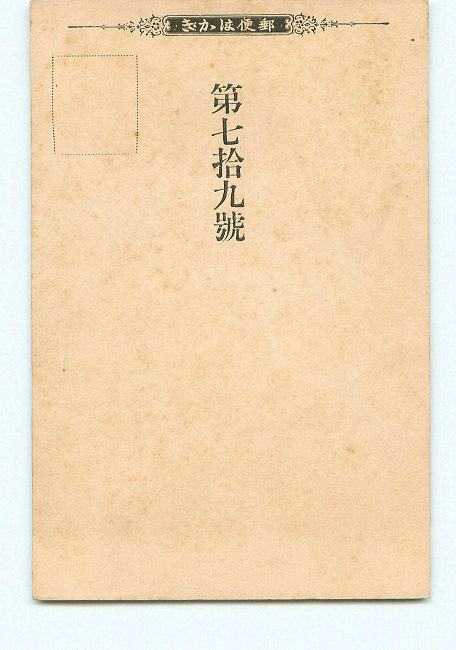 郵便はかき
第七拾九號